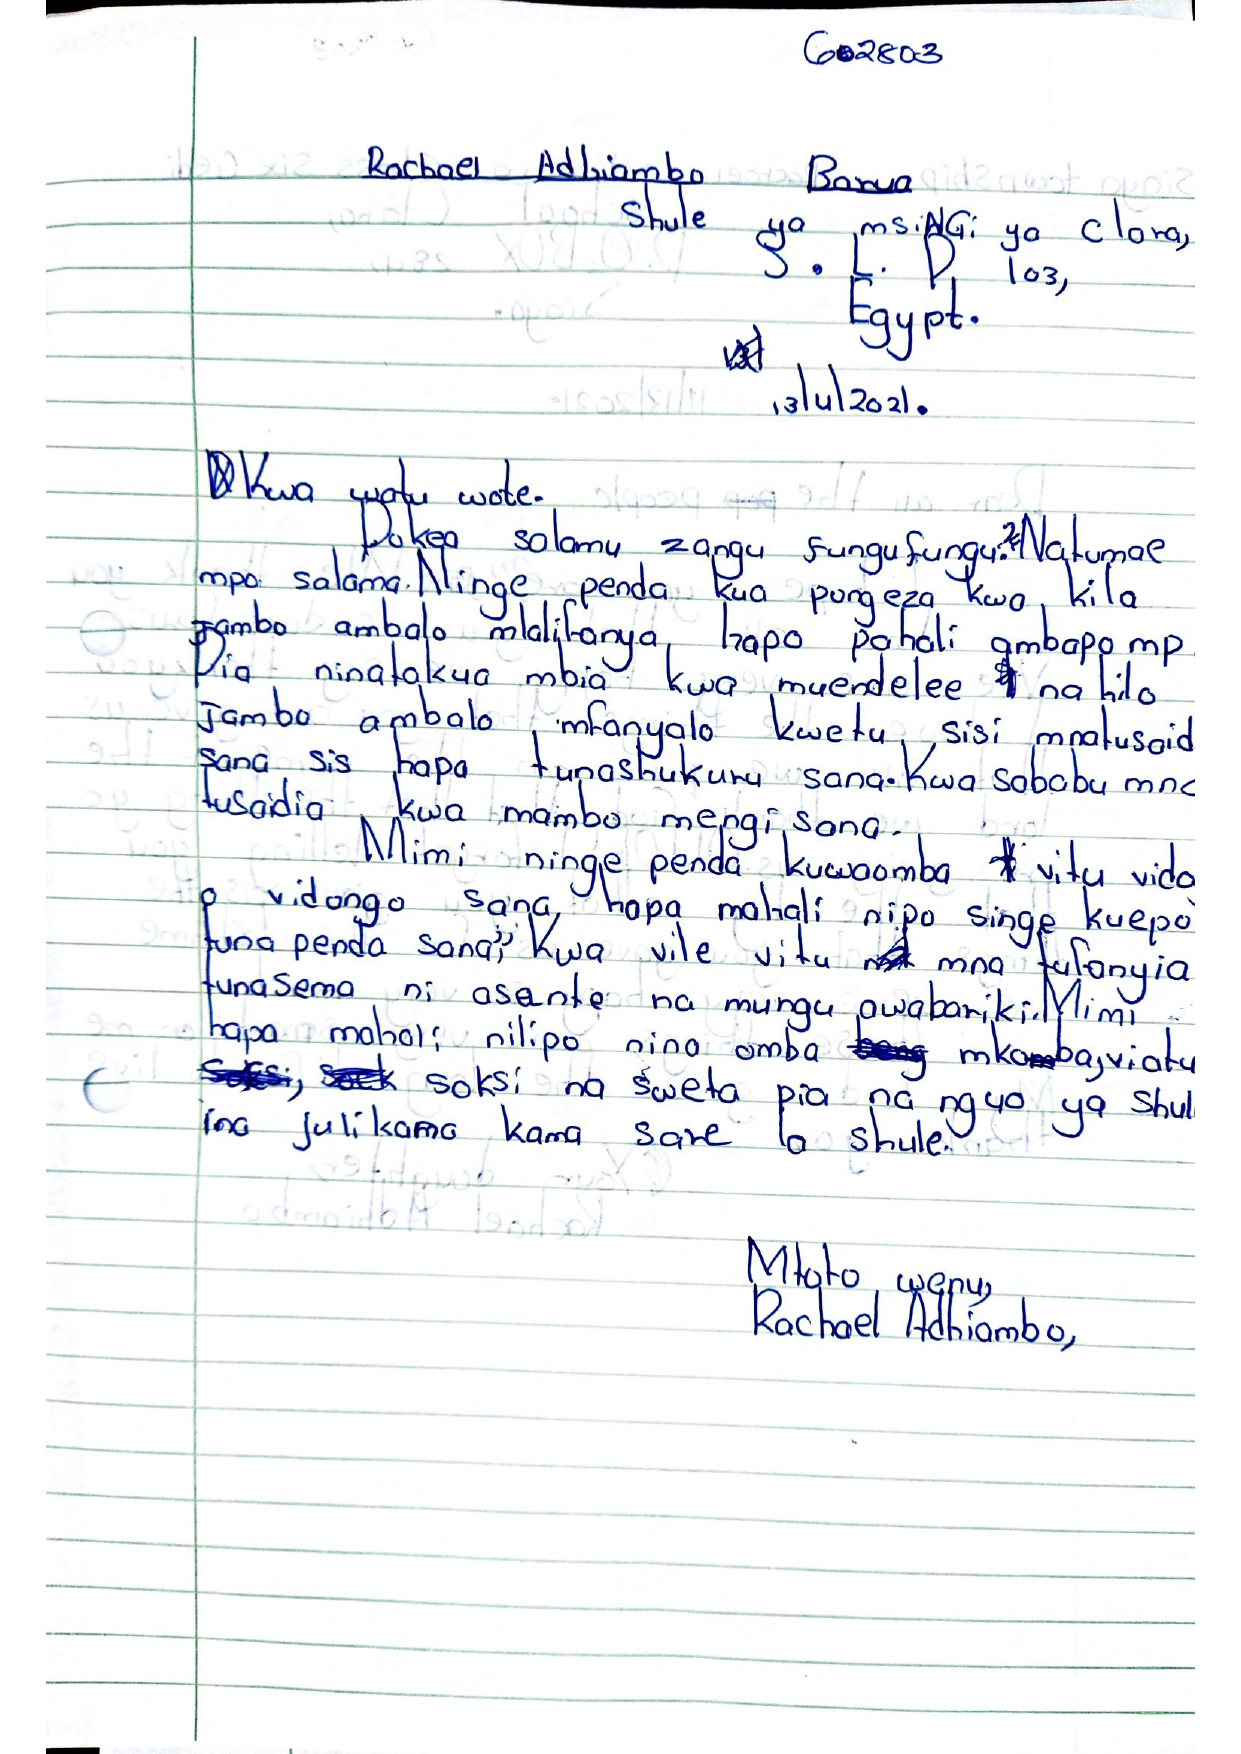 602803
Rachael Adhiambo Barua
Shule ya msiNGi ya Clora,
S. L. P 103,
Egypt.
13/4/2021.
Kwa watu wote.
Pokea salamu zangu fungufungu. Natumae
mpo salama. Ninge penda kua pongeza kwa kila
jambo ambalo mlalifanya hapo pahali ambapo mp
Pia ninatakua mbia kwa muendelee na hilo
Jambo ambalo mfanyalo kwetu, sisi mnatusaid
sana sis hapa tunashukuru sana. Kwa sababu mna
tusaidia kwa mambo mengi sana.
Mimi ninge penda kuwaomba vitu vido
o vidongo sana, hapa mahali nipo singe kuepo
tuna penda sana," Kwa vile vitu mna tufanyia
tunasema ni asante na mungu awabariki. Mimi
hapa mahali nilipo nina omba mkomba, viatu
soksi na sweta pia na nguo ya Shul
ina julikama kama sare la shule.
Mtoto wenu,
Rachael Adhiambo,